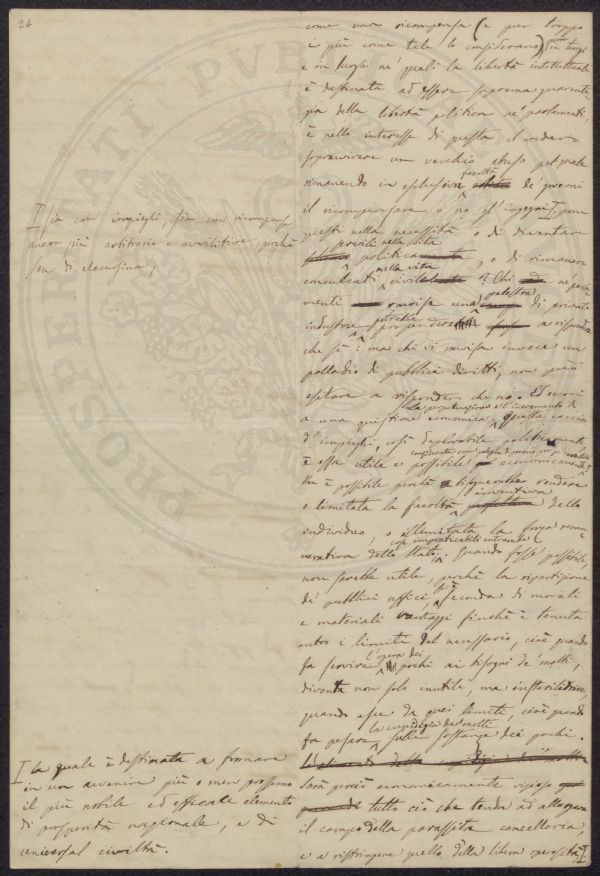 24
come una ricompensa (e pur troppo
i più come tale lo considerano), pure in tempi
e in luoghi ne' quali la libertà intellettuale
è destinata ad essere suprema guarenti
gia della libertà politica ne' parlamenti,
è nello interesse di questa il veder
sopravvivere un vecchio abuso pel quale
rimanendo in esclusiva facoltà de' governi
il ricompensare o no gl'ingegni, I pone
questi nella necessità o di diventare
servili nella vita
politica, o di rimanere
conculcati nella vita civile? Chi ne' parla
menti ravvisa una palestra di private
industrie potrebbe propendere a rispondere
che sì; ma chi vi ravvisa invece un
palladio di pubblici diritti, non può
esitare a rispondere che no. Ed eccoci
a una questione economica. La perpetuazione e l'incremento di questa caccia
d'impieghi, così deplorabile politicamente
è essa utile e possibile economicamente?
Non è possibile perchè bisognerebbe rendere
o limitata la facoltà inventiva dello
individuo, o illimitata la forza remu
nerativa dello Stato, cose impraticabili entrambe. Quando fosse possibile,
non sarebbe utile, perchè la ripartizione
de' pubblici uffici, seconda di morali
e materiali vantaggi finchè è tenuta
entro i limiti del necessario, cioè quando
fa servire l'opera dei pochi ai bisogni de' molti,
diventa non solo inutile, ma isterilitrice
quando esce da quei limiti, cioè quando
fa pesare la cupidigia dei molti sulle sostanze dei pochi.
Sarà perciò economicamente vizioso
tutto ciò che tenda ad allargare
il campo della parassita cancelleria,
e a ristringere quello della libera operosità I
I sia con impieghi, sia con ricompense
ancor più arbitrarie e avvilitive, perchè
sen di elemosina,
I la quale è destinata a formare
in un avvenire più o men prossimo
il più nobile ed efficace elemento
di prosperità nazionale, e di
universal civiltà.
PROSPERITATI PUBL